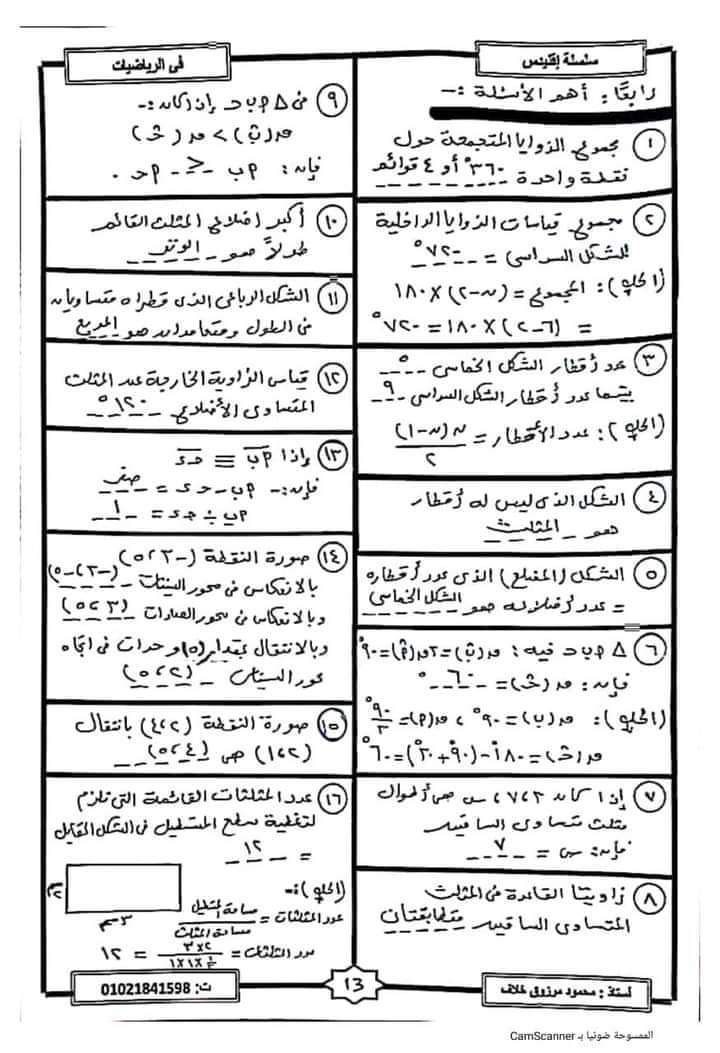 سلسلة إقليدس
في الرياضيات
رابعًا: أهم الأسئلة :-
١ مجموع الزوايا المتجمعة حول
نقطة واحدة ٣٦٠° أو ٤ قوائم
٢ مجموع قياسات الزوايا الداخلية
للشكل السداسي = ٧٢٠°
(الحل): المجموع = (ن-٢) × ١٨٠
= (٦-٢) × ١٨٠ = ٧٢٠°
٣ عدد أقطار الشكل الخماسي ٥
بينما عدد أقطار الشكل السداسي ٩
(الحل): عدد الأقطار = ن(ن-١)/٢
٤ الشكل الذى ليس له أقطار
هو المثلث
٥ الشكل (المضلع) الذى عدد أقطاره
= عدد أضلاعه هو الشكل الخماسي
٦ △ ٩بحـ فيه: مر(بُ)=٣مر(٩ُ)=٩٠°
فإن: مر(حُ)= ٦٠°
(الحل): مر(ب)=٩٠° ، مر(٩)= ٩٠°/٣
مر(حُ)=١٨٠-(٩٠+٣٠)=٦٠°
٧ إذا كان ٣،٧،س هى أطوال
مثلث متساوى الساقين
فإن: س = ٧
٨ زاويتا القاعدة فى المثلث
المتساوى الساقين متطابقتان
٩ فى △ ٩بحـ إذا كان:-
مر(بُ) > مر(حُ)
فإن: ٩ب < ٩حـ .
١٠ أكبر أضلاع المثلث القائم
طولاً هو الوتر
١١ الشكل الرباعى الذى قطراه متساويان
فى الطول ومتعامدان هو المربع
١٢ قياس الزاوية الخارجة عن المثلث
المتساوى الأضلاع ١٢٠°
١٣ إذا ٩ب ≡ حـء
فإن:- ٩ب - حـء = صفر
٩ب ÷ حـء = ١
١٤ صورة النقطة (-٣،٥)
بالانعكاس فى محور السينات (-٣،-٥)
وبالانعكاس فى محور الصادات (٣،٥)
وبالانتقال بمقدار (٥) وحدات فى اتجاه
محور السينات (٢،٥)
١٥ صورة النقطة (٢،٤) بانتقال
(٢،١) هى (٤،٥)
١٦ عدد المثلثات القائمة التى تلزم
لتغطية سطح المستطيل فى الشكل المقابل
= ١٢
(الحل):-
٢سم
٣سم
عدد المثلثات = مساحة المستطيل/مساحة المثلث
عدد المثلثات = ٣×٢ / ½×١×١ = ١٢
أستاذ : محمود مرزوق خلاف
13
ت: 01021841598
الممسوحة ضوئيا بـ CamScanner